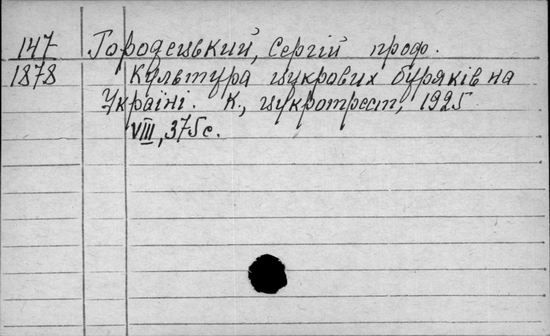 147 Городецький, Сергій проф.
1878 Культура цукрових буряків на
Україні. К., цукротрест, 1925
VIII, 375 с.